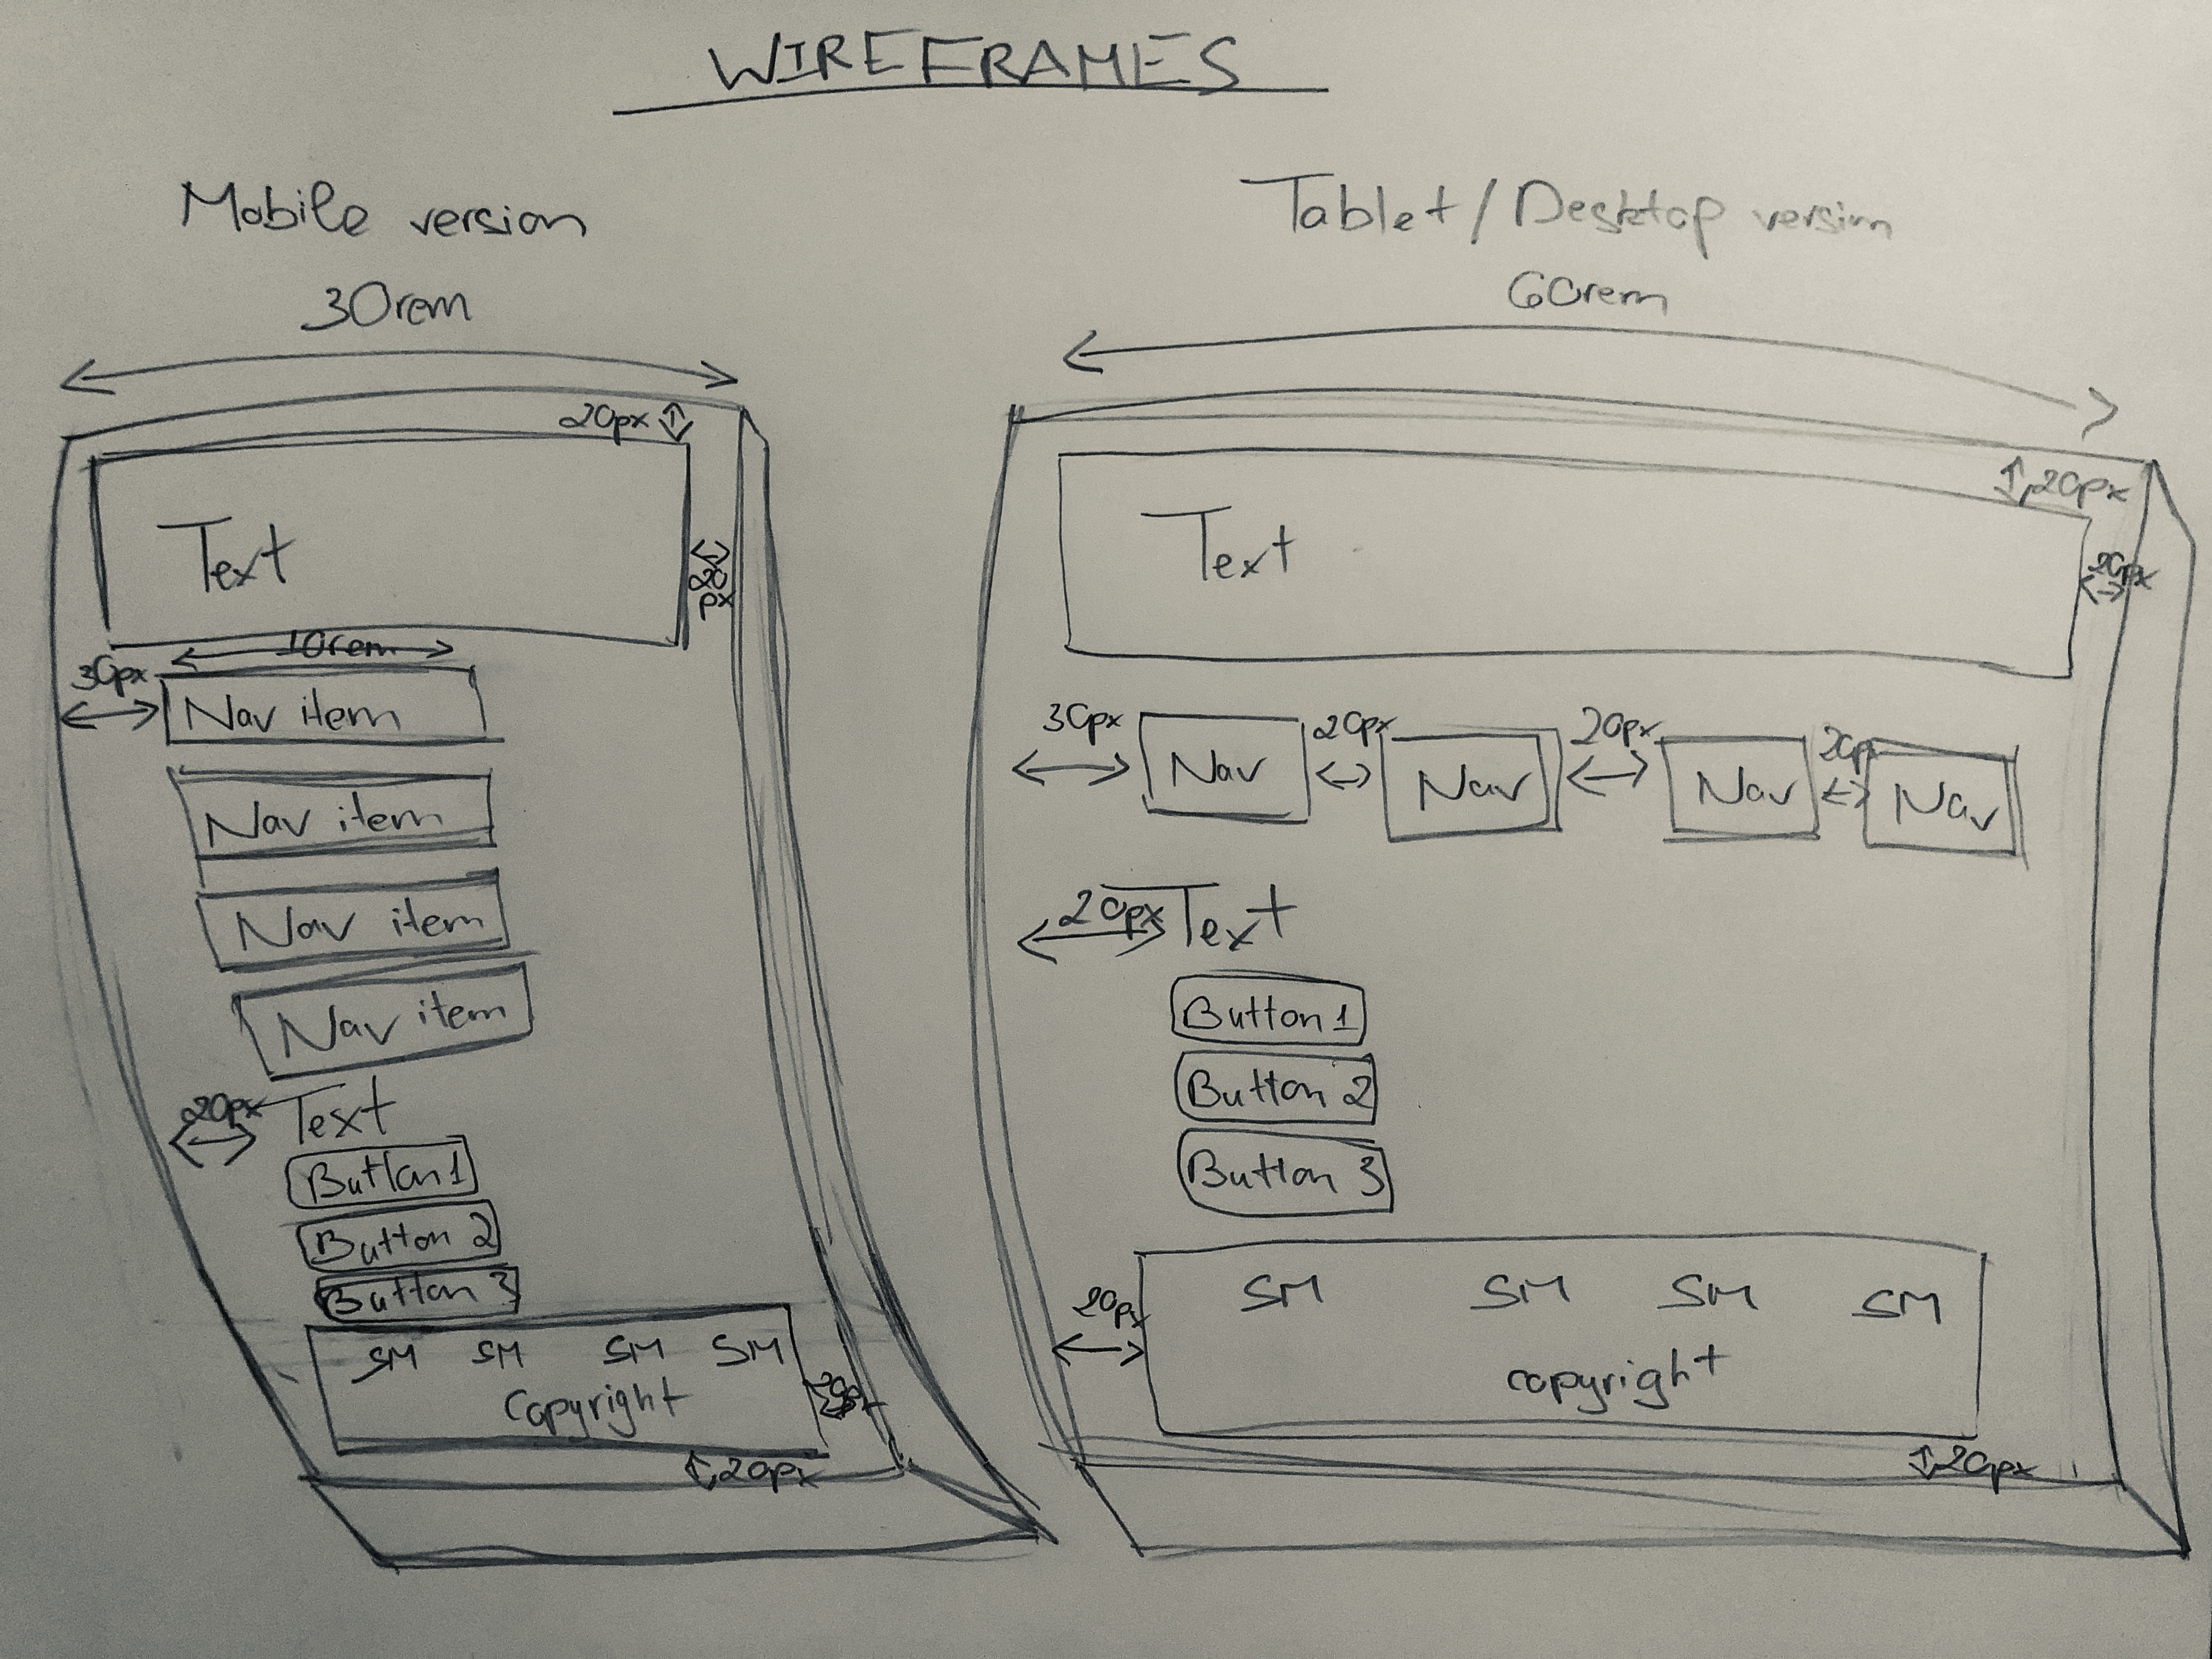 WIREFRAMES
Mobile version
30rem
20px
Text
20px
10rem
30px
Nav item
Nav item
Nav item
Nav item
20px Text
Button 1
Button 2
Button 3
SM SM SM SM
Copyright
20px
Tablet/Desktop version
60rem
20px
Text
20px
30px Nav 20px Nav 20px Nav 20px Nav
20px Text
Button 1
Button 2
Button 3
SM SM SM SM
20px
copyright
20px